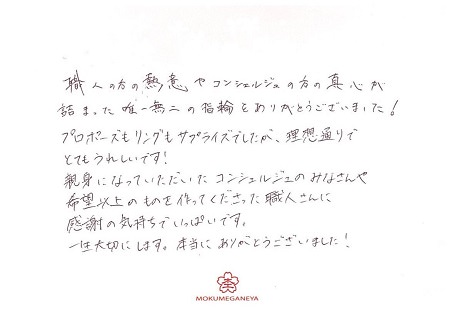 職人の方の熱意やコンシェルジュの方の真心が
詰まった唯一無二の指輪をありがとうございました!
プロポーズもリングもサプライズでしたが、理想通りで
とてもうれしいです!
親身になっていただいたコンシェルジュのみなさんや
希望以上のものを作ってくださった職人さんに
感謝の気持ちでいっぱいです。
一生大切にします。本当にありがとうございました!
MOKUMEGANEYA